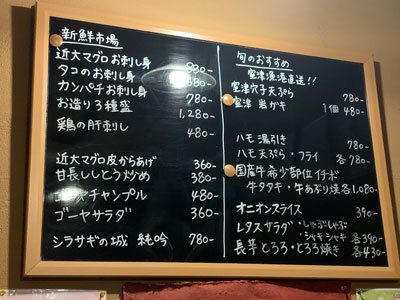 新鮮市場
近大マグロお刺し身 880-
タコのお刺し身 380-
カンパチお刺し身 780-
お造り3種盛 1,280-
鶏の肝刺し 480-
近大マグロ皮からあげ 360-
甘長ししとう炒め 380-
チャンプル 480-
ゴーヤサラダ 360-
シラサギの城 純吟 780-
旬のおすすめ
室津漁港直送!!
室津穴子天ぷら 780-
室津 岩ガキ 1個 480-
ハモ湯引き 780-
ハモ天ぷら・フライ 各780-
国産牛希少部位イチボ
牛タタキ・牛あぶり焼 各1,080-
オニオンスライス 390-
レタスサラダ・しゃぶしゃぶ
・シャキシャキ 各390-
長芋とろろ・とろろ焼き 各430-